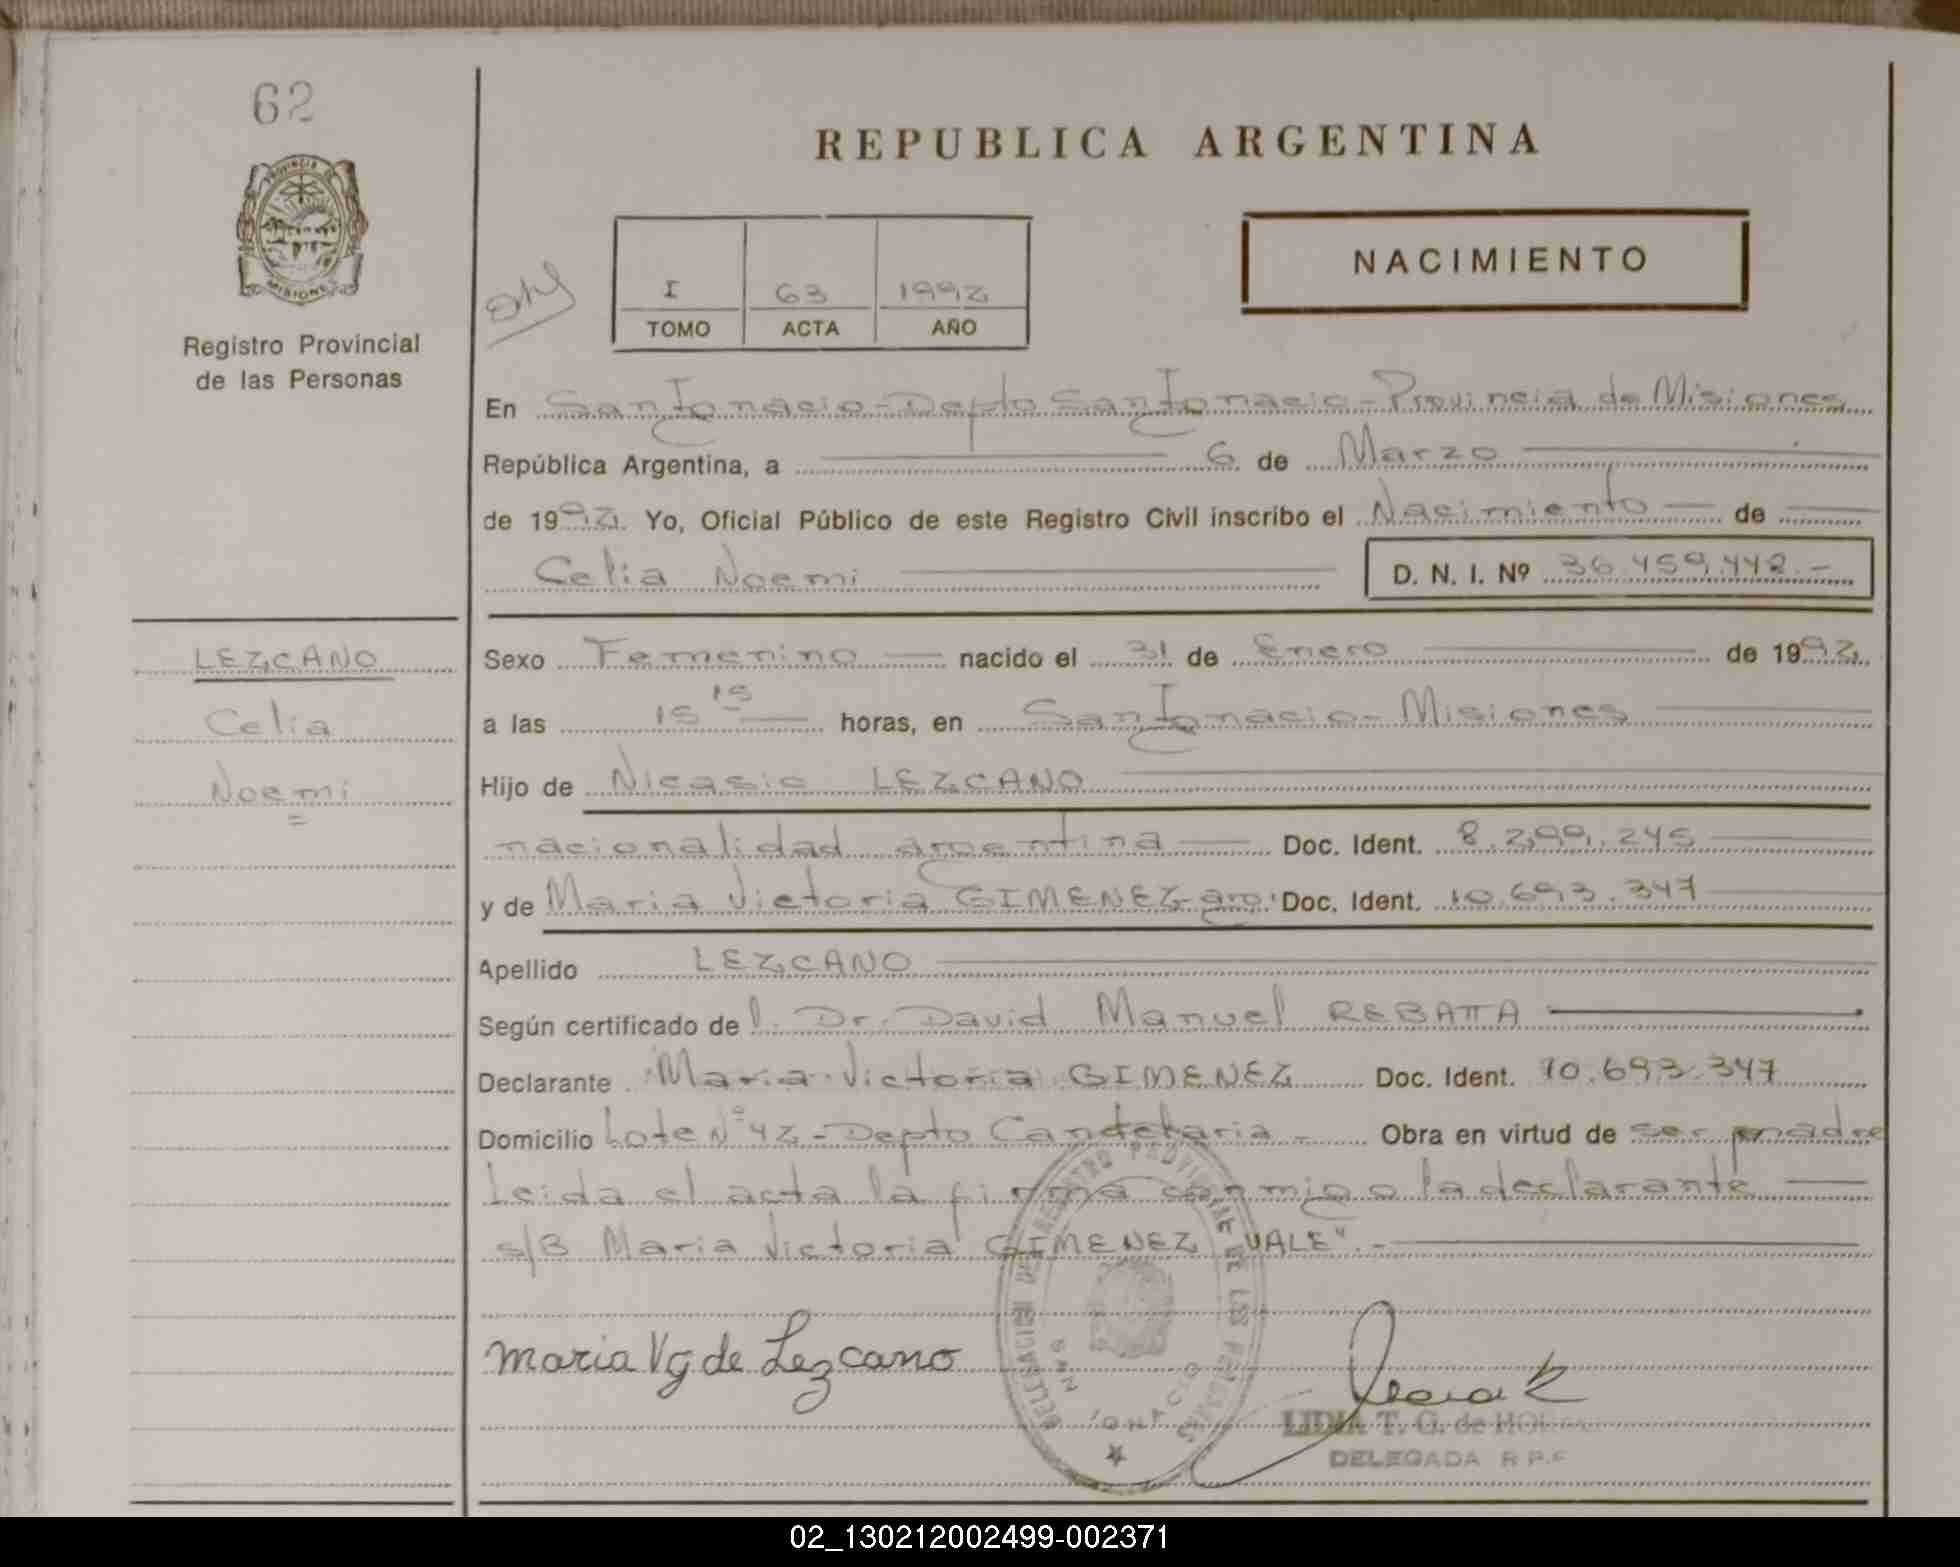 62
PROVINCIA DE
MISIONES
Registro Provincial
de las Personas
REPUBLICA ARGENTINA
NACIMIENTO
I 63 1992
TOMO ACTA AÑO
En San Ignacio - Depto San Ignacio - Provincia de Misiones
República Argentina, a 6 de Marzo
de 1992. Yo, Oficial Público de este Registro Civil inscribo el Nacimiento de
Celia Noemi D. N. I. Nº 36.459.442.-
LEZCANO
Celia
Noemi
Sexo Femenino nacido el 31 de Enero de 1992
a las 15 15 horas, en San Ignacio - Misiones
Hijo de Nicasio LEZCANO
nacionalidad argentina Doc. Ident. 8.299.245
y de Maria Victoria GIMENEZ - arg. Doc. Ident. 10.693.347
Apellido LEZCANO
Según certificado del Dr. David Manuel REBATTA
Declarante Maria Victoria GIMENEZ Doc. Ident. 10.693.347
Domicilio Lote Nº 42 - Depto Candelaria - Obra en virtud de ser madre
Leida el acta la firma conmigo la declarante
s/B Maria Victoria GIMENEZ "VALE".-
maria Vg de Lezcano
DELEGACION DEL REGISTRO PROVINCIAL DE LAS PERSONAS
SAN IGNACIO
LIDIA T. G. de
DELEGADA R.P.P
02_130212002499-002371